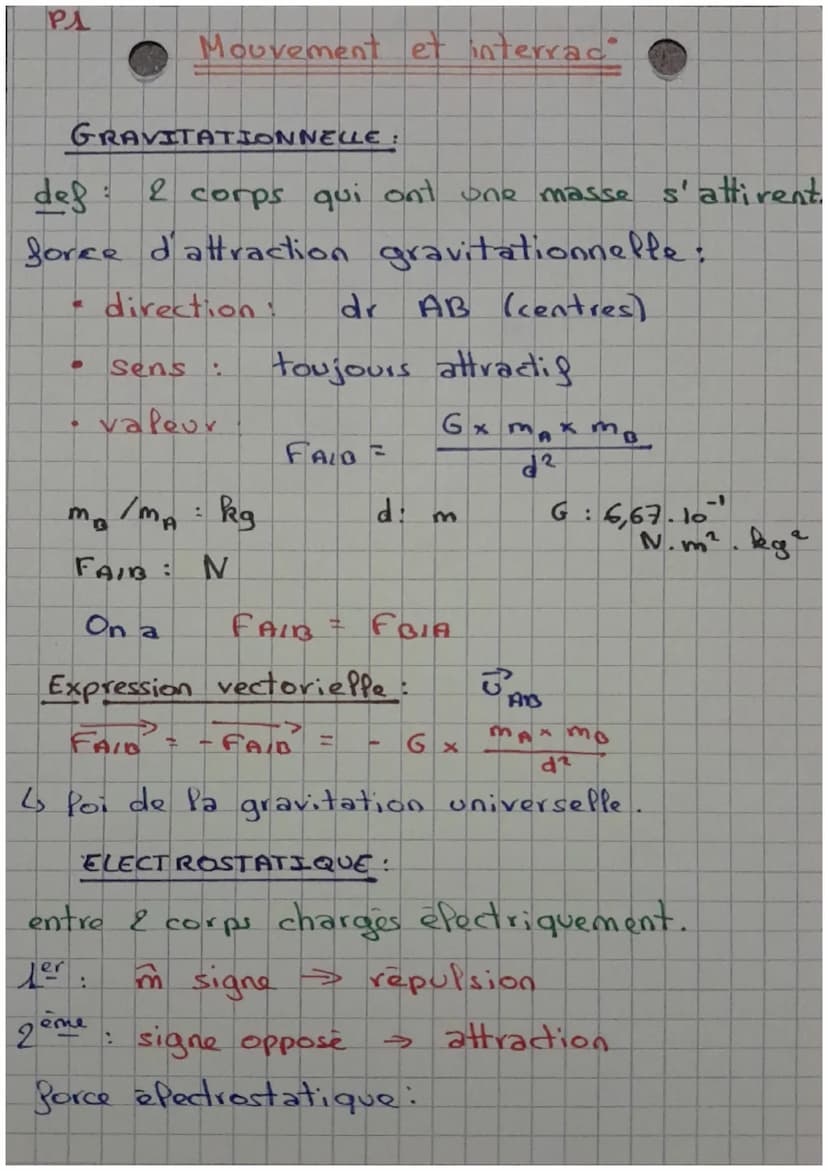 P1
Mouvement et interrac°
GRAVITATIONNELLE :
def : 2 corps qui ont une masse s'attirent.
force d'attraction gravitationnelle :
• direction : dr AB (centres)
• sens : toujours attractif
• valeur : F_A/B = (G × m_A × m_B) / d²
m_B / m_A : kg d : m G : 6,67.10⁻¹
N.m².kg²
F_A/B : N
On a F_A/B = F_B/A
Expression vectorielle : U⃗_AB
F_A/B⃗ = - F_A/B⃗ = - G × (m_A × m_B) / d²
↳ loi de la gravitation universelle.
ELECTROSTATIQUE :
entre 2 corps chargés électriquement.
1er : m̂ signe → répulsion
2ème : signe opposé → attraction
force électrostatique :